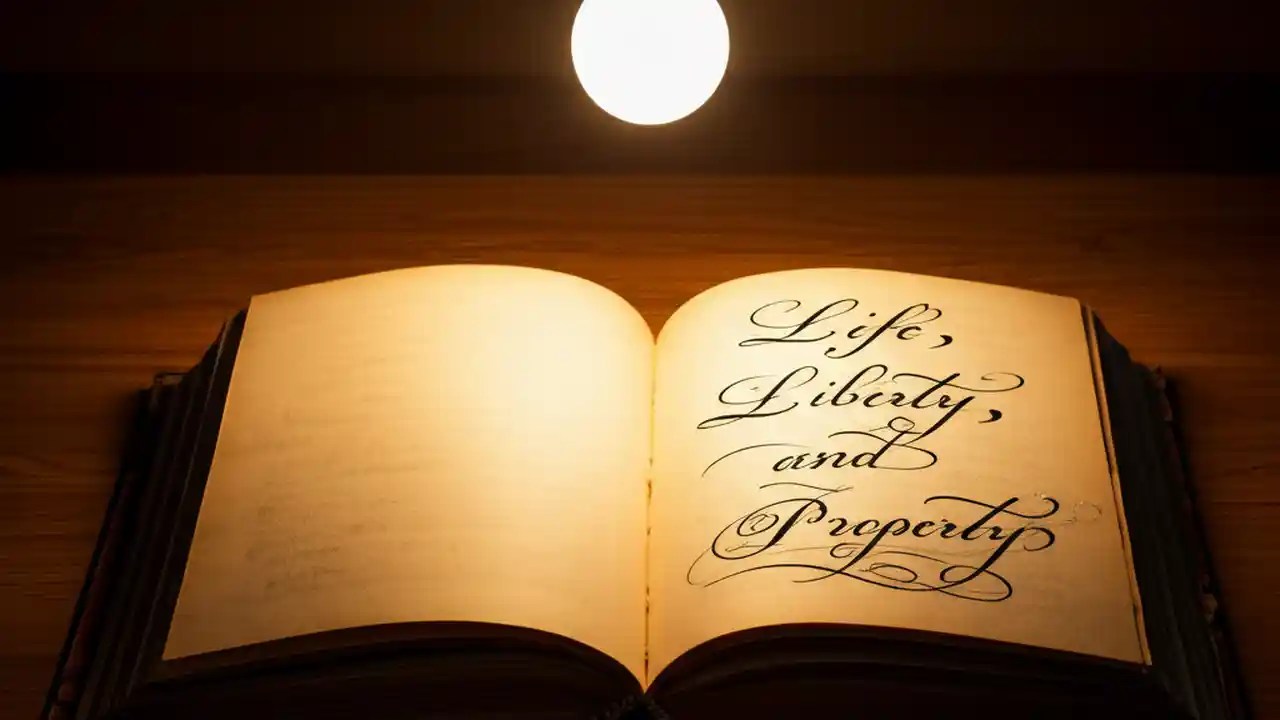 Life,
Liberty,
and
Property